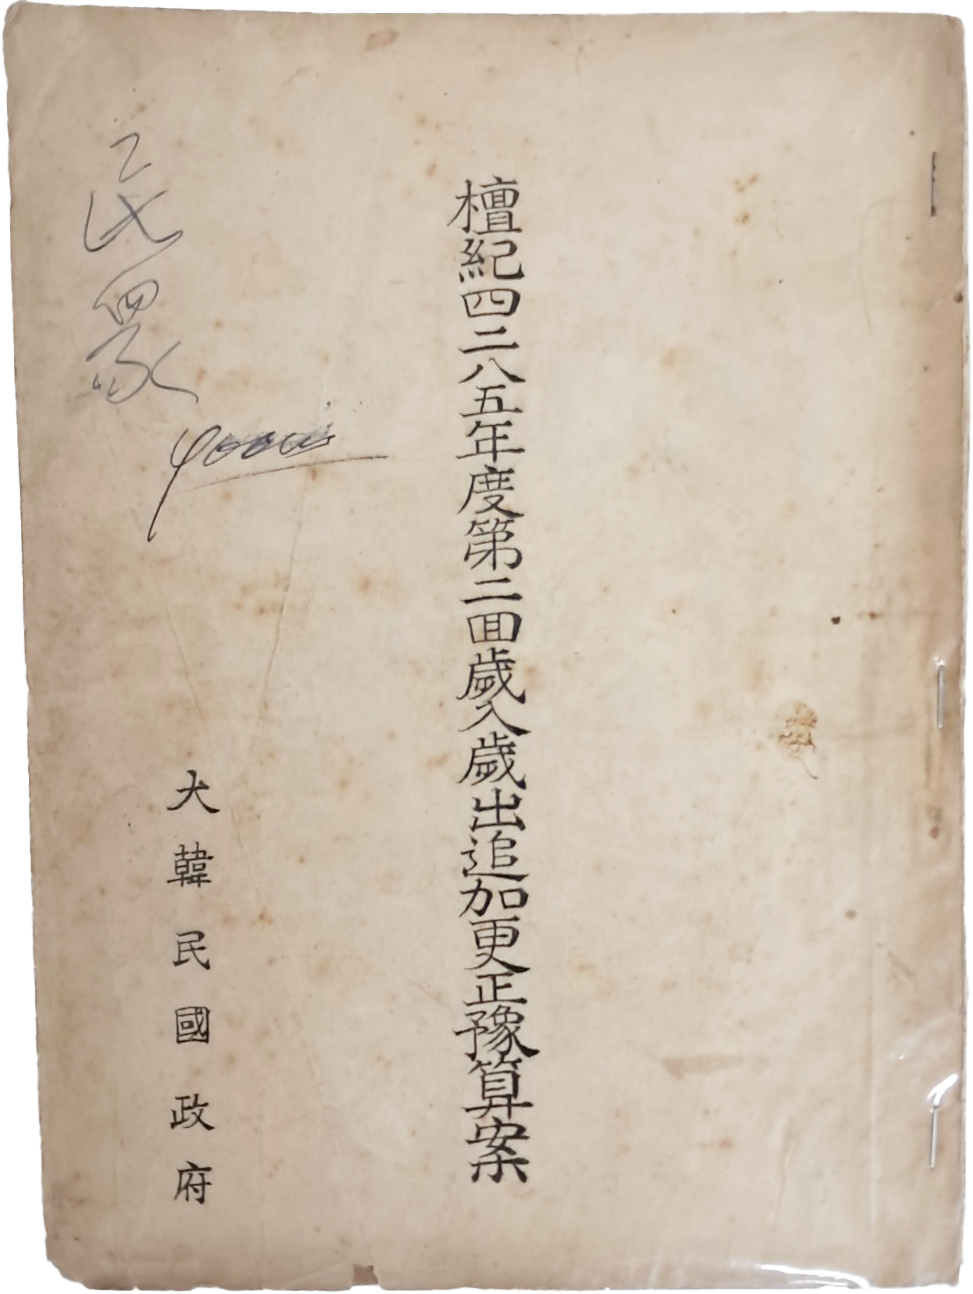 檀紀四二八五年度第二回歲入歲出追加更正豫算案
民眾
大韓民國政府